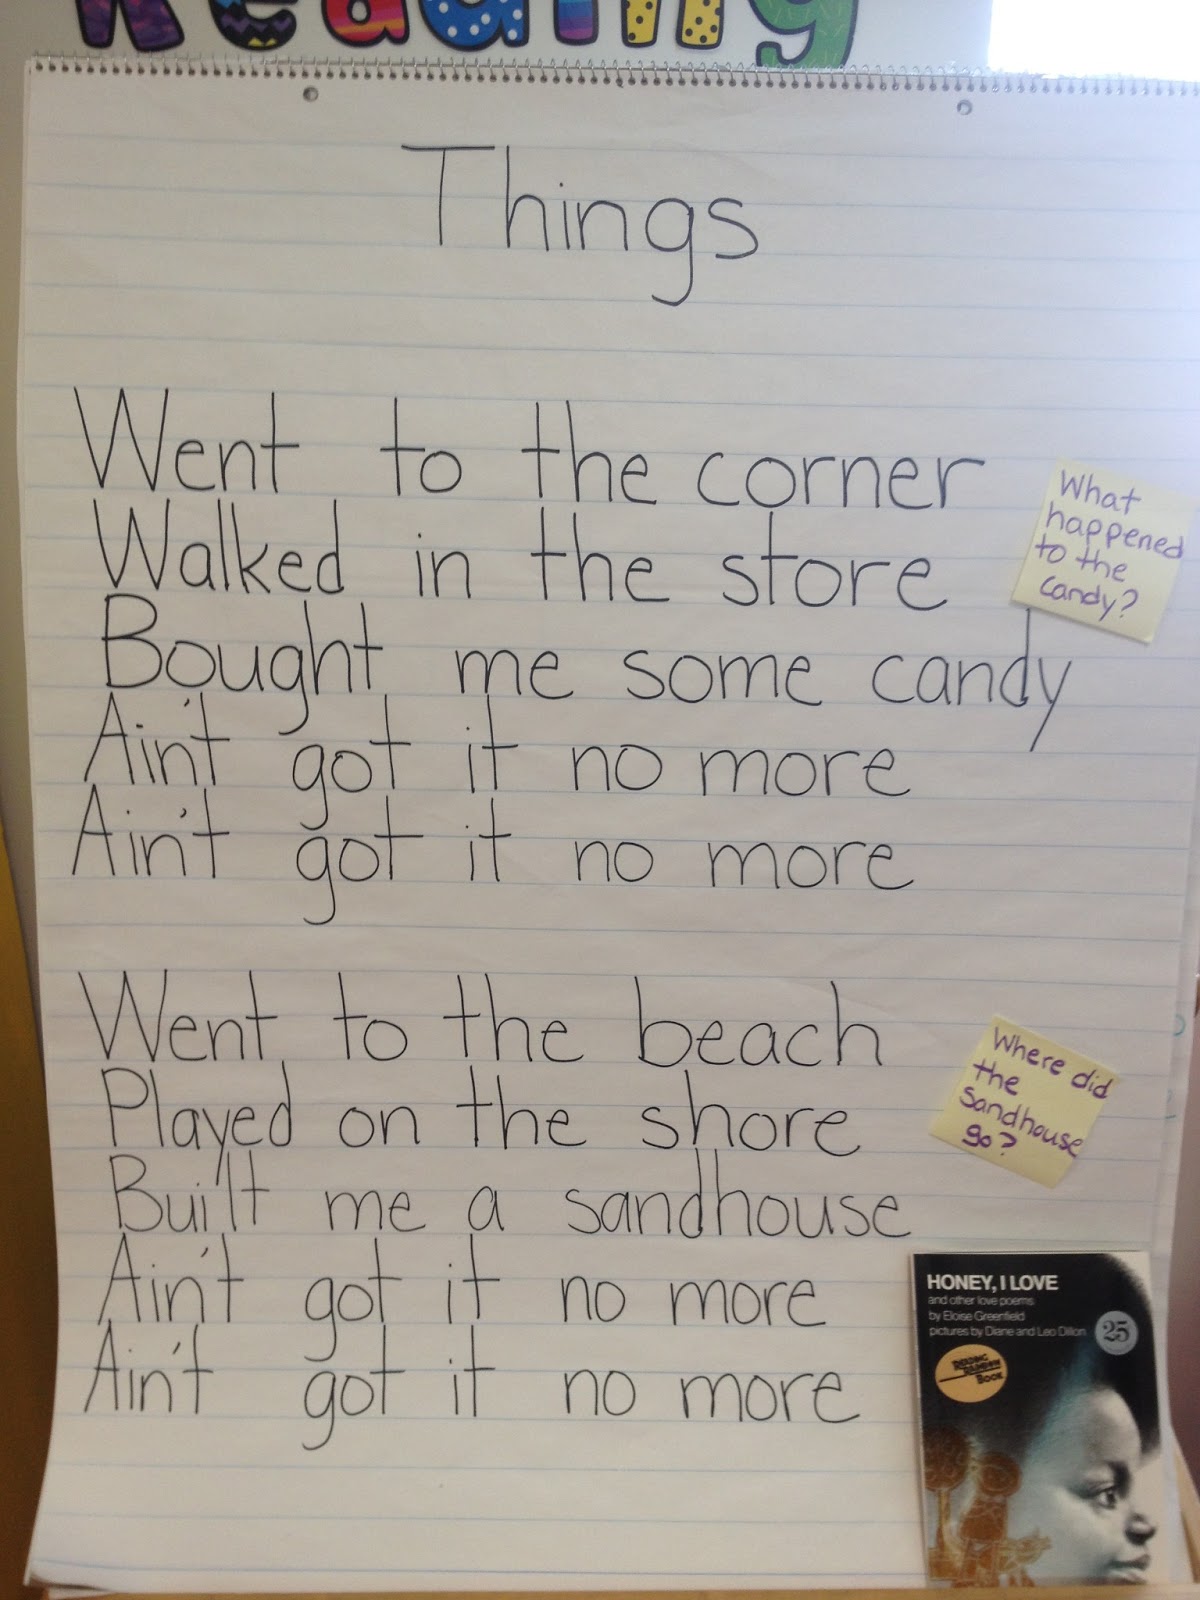 Reading
Things
Went to the corner
Walked in the store
Bought me some candy
Ain't got it no more
Ain't got it no more
What
happened
to the
candy?
Went to the beach
Played on the shore
Built me a sandhouse
Ain't got it no more
Ain't got it no more
Where did
the
sandhouse
go?
HONEY, I LOVE
and other love poems
by Eloise Greenfield
pictures by Diane and Leo Dillon
25
READING
RAINBOW
BOOK